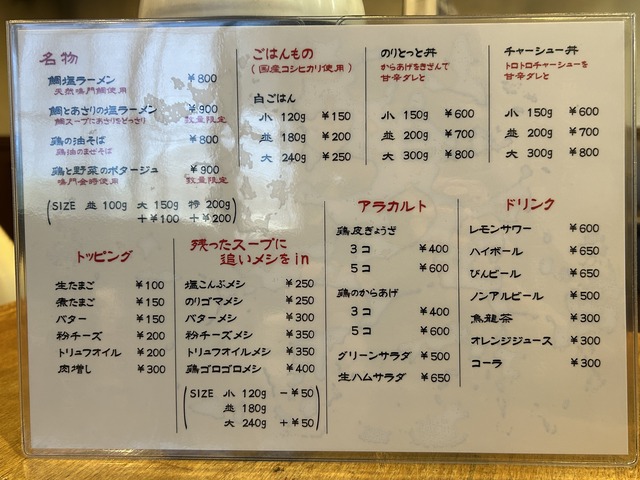 名物
鯛塩ラーメン ¥800
天然鳴門鯛使用
鯛とあさりの塩ラーメン ¥900
鯛スープにあさりをどっさり 数量限定
鶏の油そば ¥800
鶏油のまぜそば
鶏と野菜のポタージュ ¥900
鳴門金時使用 数量限定
(SIZE 並 100g 大 150g 特 200g)
+¥100 +¥200
ごはんもの
(国産コシヒカリ使用)
白ごはん
小 120g ¥150
並 180g ¥200
大 240g ¥250
のりとっと丼
からあげをきざんで
甘辛ダレと
小 150g ¥600
並 200g ¥700
大 300g ¥800
チャーシュー丼
トロトロチャーシューを
甘辛ダレと
小 150g ¥600
並 200g ¥700
大 300g ¥800
トッピング
生たまご ¥100
煮たまご ¥150
バター ¥150
粉チーズ ¥200
トリュフオイル ¥200
肉増し ¥300
残ったスープに
追いメシをin
塩こんぶメシ ¥250
のりゴマメシ ¥250
バターメシ ¥300
粉チーズメシ ¥350
トリュフオイルメシ ¥350
鶏ゴロゴロメシ ¥400
(SIZE 小 120g −¥50
並 180g
大 240g +¥50)
アラカルト
鶏皮ぎょうざ
3コ ¥400
5コ ¥600
鶏のからあげ
3コ ¥400
5コ ¥600
グリーンサラダ ¥500
生ハムサラダ ¥650
ドリンク
レモンサワー ¥600
ハイボール ¥650
びんビール ¥650
ノンアルビール ¥500
烏龍茶 ¥300
オレンジジュース ¥300
コーラ ¥300